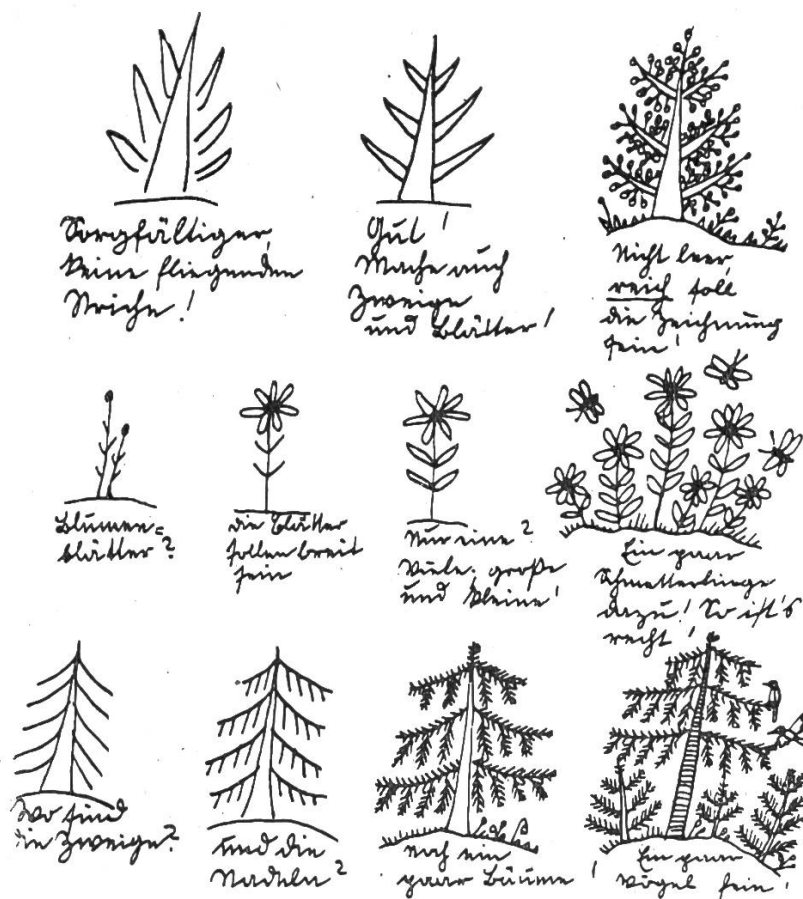 Sorgfältiger,
keine fliegenden
Striche!
Gut!
Mache auch
Zweige
und Blätter!
Nicht leer,
reich soll
die Zeichnung
sein!
Blumen=
blätter?
die Blätter
sollen breit
sein
Nur eine?
Viele, große
und kleine!
Ein paar
Schmetterlinge
dazu! So ist's
recht!
Wo sind
die Zweige?
und die
Nadeln?
noch ein
paar Bäume!
Ein paar
Vögel fein!